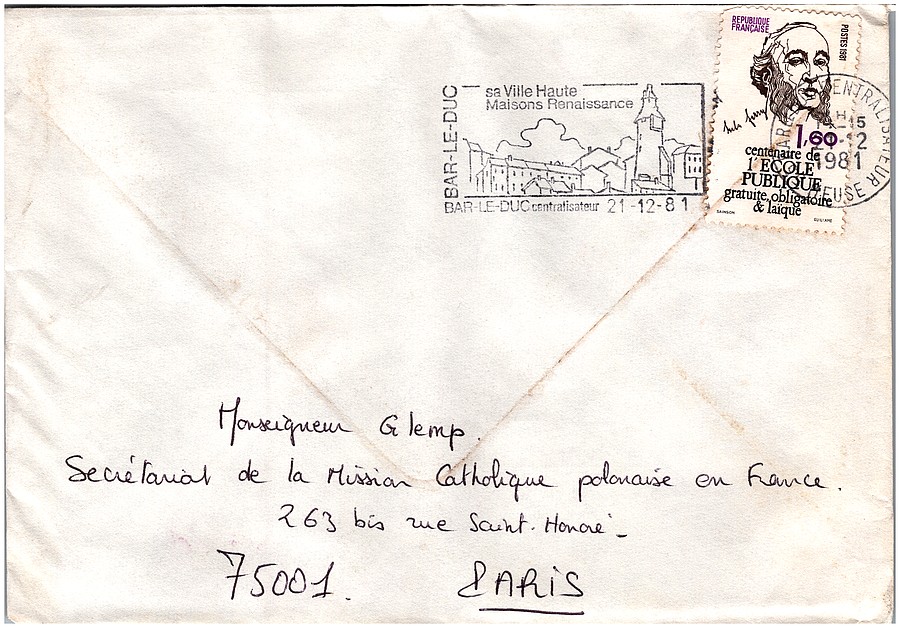 REPUBLIQUE
FRANÇAISE
POSTES 1981
1,60
centenaire de
l'ECOLE
PUBLIQUE
gratuite, obligatoire
& laïque
BAR-LE-DUC
sa Ville Haute
Maisons Renaissance
BAR-LE-DUC centralisateur 21-12-81
CENTRALISATEUR
1981
MEUSE
Monseigneur Glemp.
Secrétariat de la Mission Catholique polonaise en France.
263 bis rue Saint-Honoré -
75001. PARIS